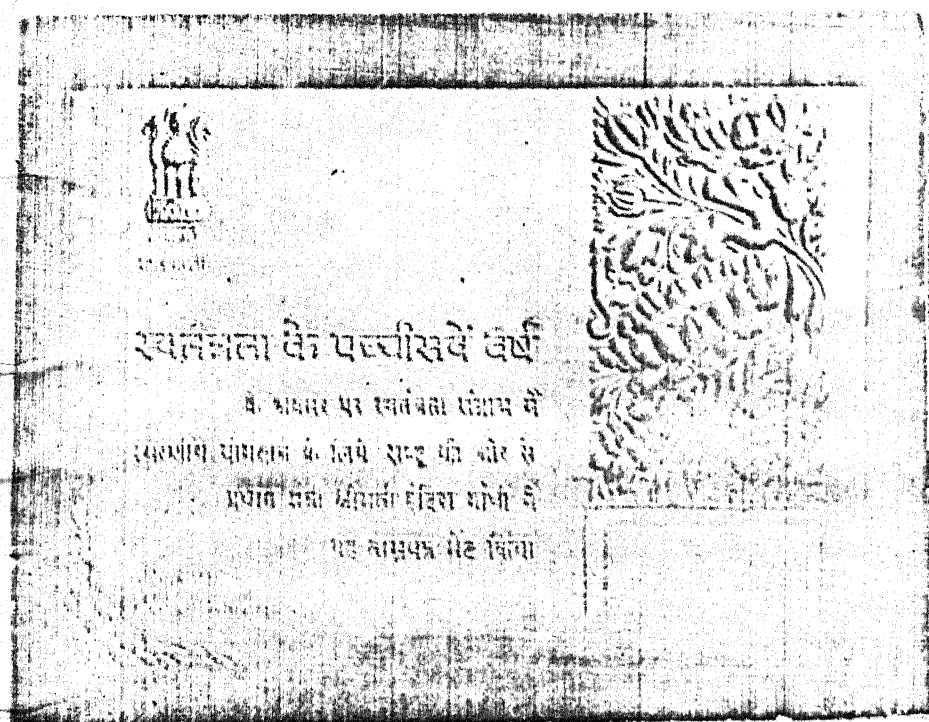 स्वतंत्रता के पच्चीसवें वर्ष
के अवसर पर स्वतंत्रता संग्राम में
स्मरणीय योगदान के लिये राष्ट्र की ओर से
प्रधान मंत्री श्रीमती इंदिरा गांधी ने
यह ताम्रपत्र भेंट किया